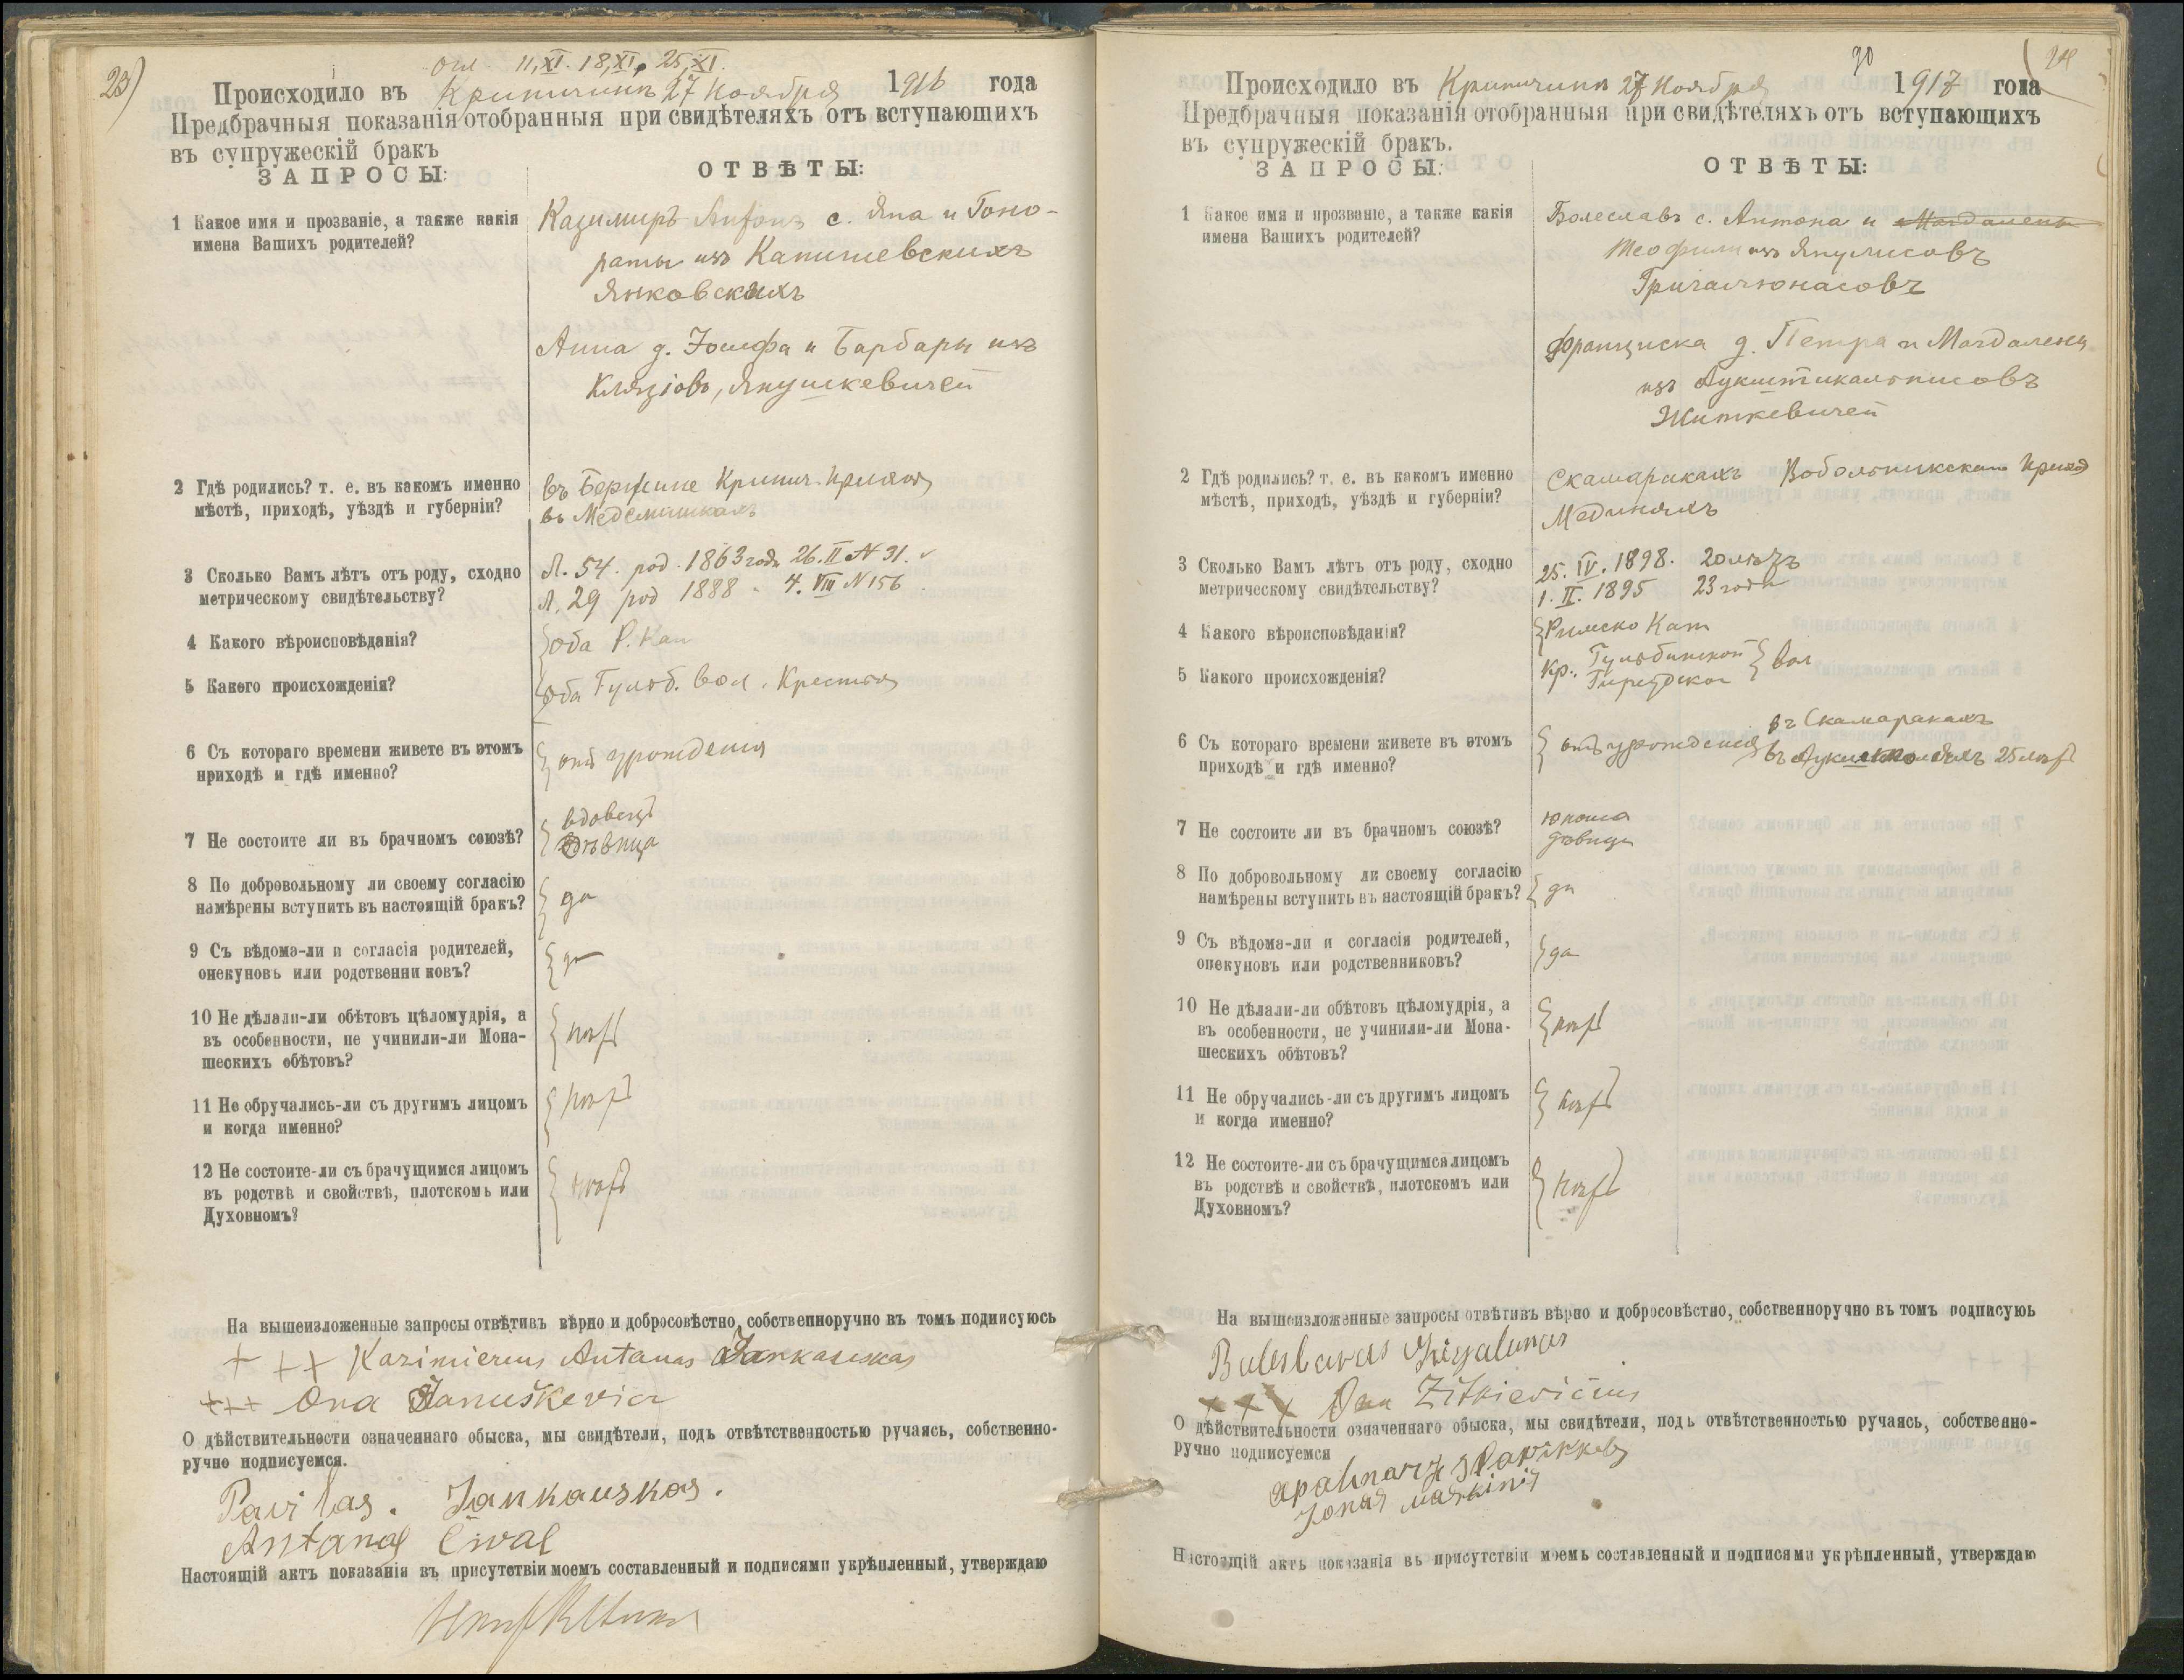 23)
огл 11,XI. 18,XI, 25,XI.
Происходило въ Крипичинъ 27 Ноября 1916 года
Предбрачныя показанія отобранныя при свидѣтеляхъ отъ вступающихъ
въ супружескій бракъ
ЗАПРОСЫ: ОТВѢТЫ:
1 Какое имя и прозваніе, а также какія
имена Вашихъ родителей?
Казимиръ Antonъ с. Яна и Гоно-
раты изъ
Янковскихъ
Анна д. Іосифа и Барбары изъ
Янушкевичей
2 Гдѣ родились? т. е. въ какомъ именно
мѣстѣ, приходѣ, уѣздѣ и губерніи?
въ Крипич. прихода
въ
3 Сколько Вамъ лѣтъ отъ роду, сходно
метрическому свидѣтельству?
Л. 54. род. 1863 года 26.II № 31.
Л. 29 род 1888 - 4. VIII № 156
4 Какого вѣроисповѣданія?
оба Р. Кат
5 Какого происхожденія?
оба Гульб. вол. Крестья
6 Съ котораго времени живете въ этомъ
приходѣ и гдѣ именно?
отъ урожденія
7 Не состоите ли въ брачномъ союзѣ?
вдовецъ
дѣвица
8 По добровольному ли своему согласію
намѣрены вступить въ настоящій бракъ?
да
9 Съ вѣдома-ли и согласія родителей,
опекуновъ или родственниковъ?
да
10 Не дѣлали-ли обѣтовъ цѣломудрія, а
въ особенности, не учинили-ли Мона-
шескихъ обѣтовъ?
нѣтъ
11 Не обручались-ли съ другимъ лицомъ
и когда именно?
нѣтъ
12 Не состоите-ли съ брачущимся лицомъ
въ родствѣ и свойствѣ, плотскомъ или
Духовномъ?
нѣтъ
На вышеизложенные запросы отвѣтивъ вѣрно и добросовѣстно, собственноручно въ томъ подписуюсь
+ + + Kazimierus Antanas Jankauskas
+++ Ona Januškevicz
О дѣйствительности означеннаго обыска, мы свидѣтели, подъ отвѣтственностью ручаясь, собственно-
ручно подписуемся.
Pavilas. Jankauskas.
Antanas
Настоящій актъ показанія въ присутствіи моемъ составленный и подписями укрѣпленный, утверждаю
Происходило въ Крипичинъ 27 Ноября 1917 года
Предбрачныя показанія отобранныя при свидѣтеляхъ отъ вступающихъ
въ супружескій бракъ.
ЗАПРОСЫ: ОТВѢТЫ:
1 Какое имя и прозваніе, а также какія
имена Вашихъ родителей?
Болеславъ с. Антона и Магдалены
Теофили изъ Янулисовъ
Григалюнасовъ
Франциска д. Петра и Магдалены
изъ
Житкевичей
2 Гдѣ родились? т. е. въ какомъ именно
мѣстѣ, приходѣ, уѣздѣ и губерніи?
Скамаракахъ Вобольникскаго приход
3 Сколько Вамъ лѣтъ отъ роду, сходно
метрическому свидѣтельству?
25. IV. 1898. 20 лѣтъ
1. II. 1895 23 года
4 Какого вѣроисповѣданія?
Римско Кат
5 Какого происхожденія?
Кр. Гульбинской вол
6 Съ котораго времени живете въ этомъ
приходѣ и гдѣ именно?
отъ урожденія въ Скамаракахъ
въ 25 лѣтъ
7 Не состоите ли въ брачномъ союзѣ?
юноша
дѣвица
8 По добровольному ли своему согласію
намѣрены вступить въ настоящій бракъ?
да
9 Съ вѣдома-ли и согласія родителей,
опекуновъ или родственниковъ?
да
10 Не дѣлали-ли обѣтовъ цѣломудрія, а
въ особенности, не учинили-ли Мона-
шескихъ обѣтовъ?
нѣтъ
11 Не обручались-ли съ другимъ лицомъ
и когда именно?
нѣтъ
12 Не состоите-ли съ брачущимся лицомъ
въ родствѣ и свойствѣ, плотскомъ или
Духовномъ?
нѣтъ
На вышеизложенные запросы отвѣтивъ вѣрно и добросовѣстно, собственноручно въ томъ подписуюь
Boleslavas
+ + +
О дѣйствительности означеннаго обыска, мы свидѣтели, подъ отвѣтственностью ручаясь, собственно-
ручно подписуемся
Jonas
Настоящій актъ показанія въ присутствіи моемъ составленный и подписями укрѣпленный, утверждаю